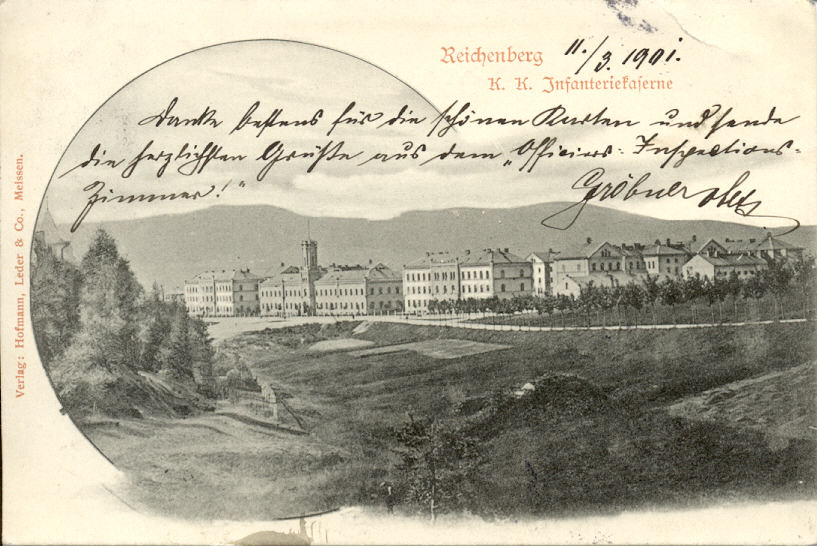 Reichenberg 11./3. 1901.
K. K. Infanteriekaserne
Danke bestens für die schönen Karten und sende
die herzlichsten Grüße aus dem „Officiers-Inspections-
Zimmer!“
Gröbner
Verlag: Hofmann, Leder & Co., Meissen.